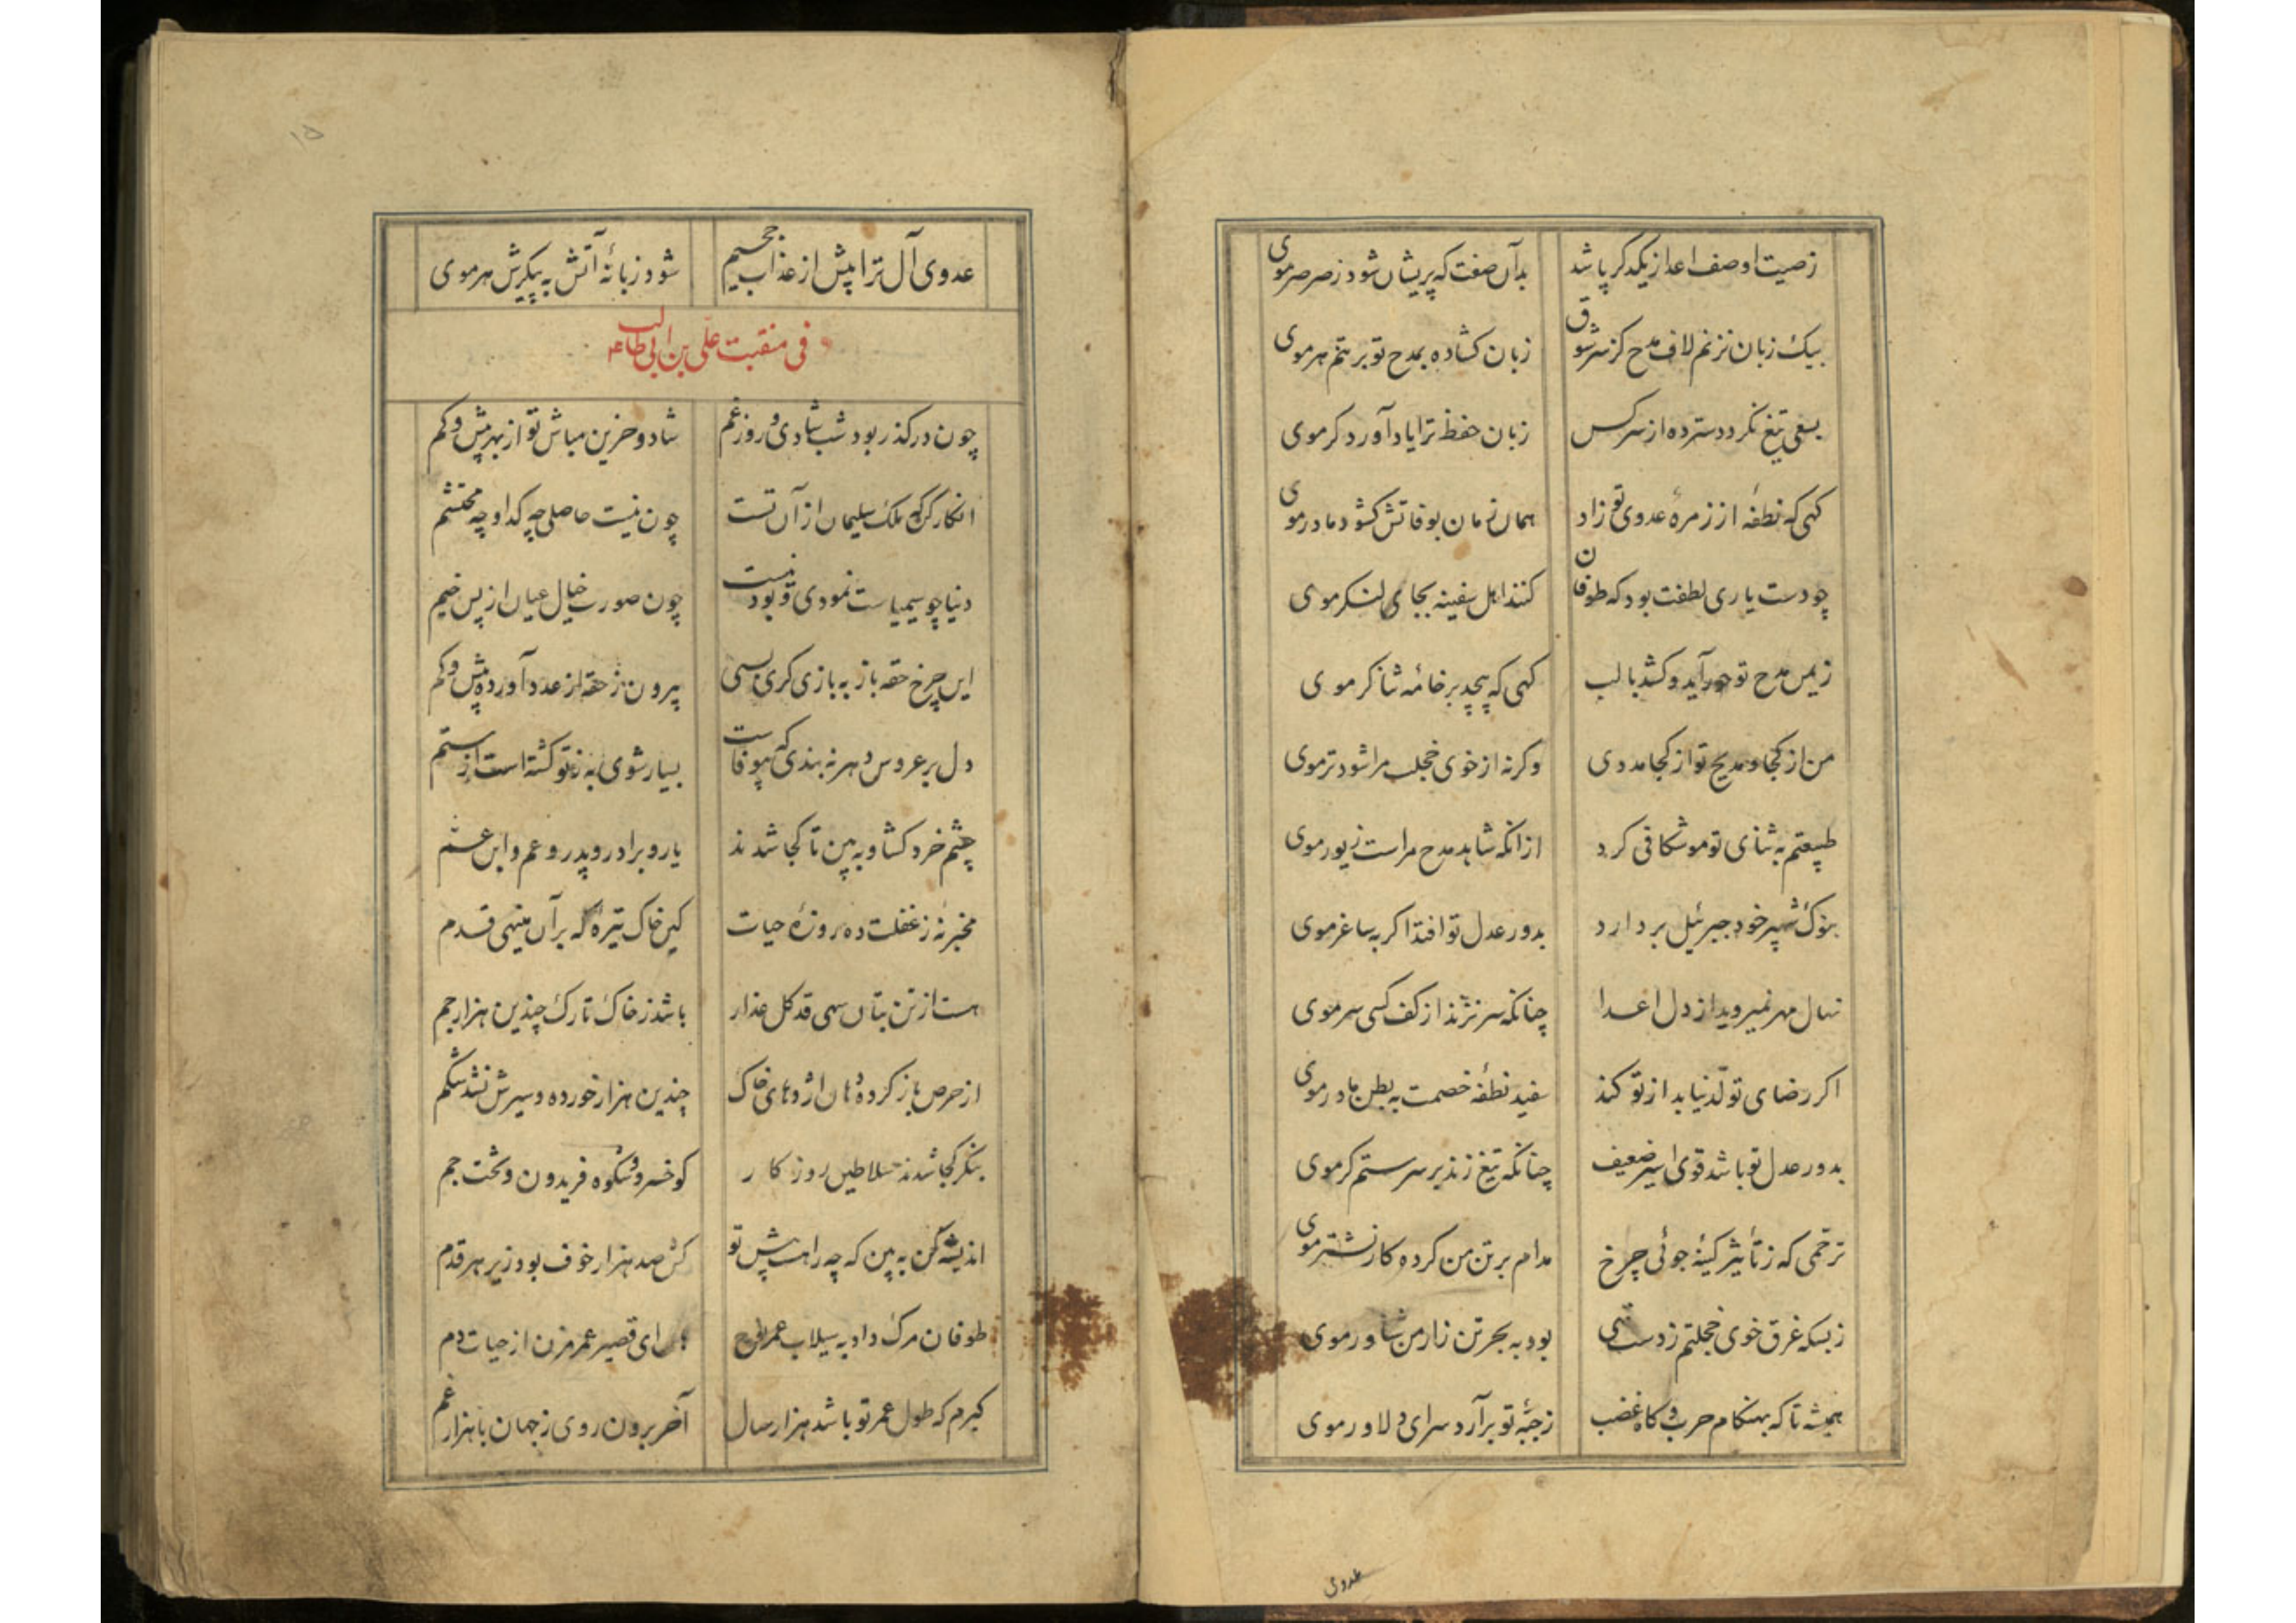 زصیت او صف اعدا ز یکدکر پاشد بدآن صفت که پریشان شود ز صرصر موی
بیک زبان نزنم لاف مدح کز سر شوق زبان کشاده بمدح تو بر تنم هر موی
بسعی تیغ نکردد سترده از سر کس زبان حفظ ترا یاد آورد کر موی
کهی که نطفه از زمرهٔ عدوی تو زاد همان زمان بوفاتش کشود مادر موی
چو دست یاری لطفت بود که طوفان کنند اهل سفینه بجای لنکر موی
ز یمن مدح تو حور آید و کشد بالب کهی که پیچد بر خامه ثناکر موی
من از کجا و مدیح تو از کجا مددی وکرنه از خوی خجلت مرا شود تر موی
طبیعتم به ثنای تو موشکافی کرد از انکه شاهد مدح مراست زیور موی
بنوک شهپر خود جبرئیل بردارد بدور عدل تو افتد اکر به ساغر موی
نهال مهر نمیروید از دل اعدا چنانکه سر نزند از کف کسی سر موی
اکر رضای تولّد نیابد از تو کند سفید نطفهٔ خصمت به بطن مادر موی
بدور عدل تو باشد قوی اسیر ضعیف چنانکه تیغ زند بر سر ستمکر موی
ترحّمی که ز تأثیر کینه جوئی چرخ مدام بر تن من کرده کار نشتر موی
ز بسکه غرق خوی خجلتم ز دست تهی بود به بحر تن زار من شناور موی
همیشه تا که بهنکام حرب و کاه غضب ز جبّهٔ تو برآرد سرای دلاور موی
عدوی
۱۵
عدوی آل ترا پیش از عذاب جحیم شود زبانهٔ آتش به پیکرش هر موی
فی منقبت علی بن ابی طالب ع
چون در کذر بود شب شادی و روز غم شاد و حزین مباش تو از بهر بیش و کم
انکار کن که ملک سلیمان از آن تست چون نیست حاصلی چه کدا و چه محتشم
دنیا چو سیمیاست نمودی و بود نیست چون صورت خیال عیان از پس خیم
این چرخ حقه باز به بازی کری بسی بیرون ز حقه از عدد آورده بیش و کم
دل بر عروس دهر نه بندی که بیوفاست بسیار شوی به ز تو کشته است از ستم
چشم خرد کشا و به بین تا کجا شدند یار و برادر و پدر و عم و ابن عم
مخبر نهٔ ز غفلت ده روزهٔ حیات کین خاک تیرهٔ که بر آن مینهی قدم
هست از تن بتان سهی قد کل عذار باشد ز خاک تارک چندین هزار جم
از حرص باز کرده دهان اژدهای خاک چندین هزار خورده و سیرش نشد شکم
بنکر کجا شدند سلاطین روزکار کو خسرو و شکوه فریدون و تخت جم
اندیشه کن به بین که چه راهست پیش تو کش صد هزار خوف بود زیر هر قدم
طوفان مرک داد به سیلاب عمر نوح ای قصیر عمر مزن از حیات دم
کیرم که طول عمر تو باشد هزار سال آخر برون روی ز جهان با هزار غم